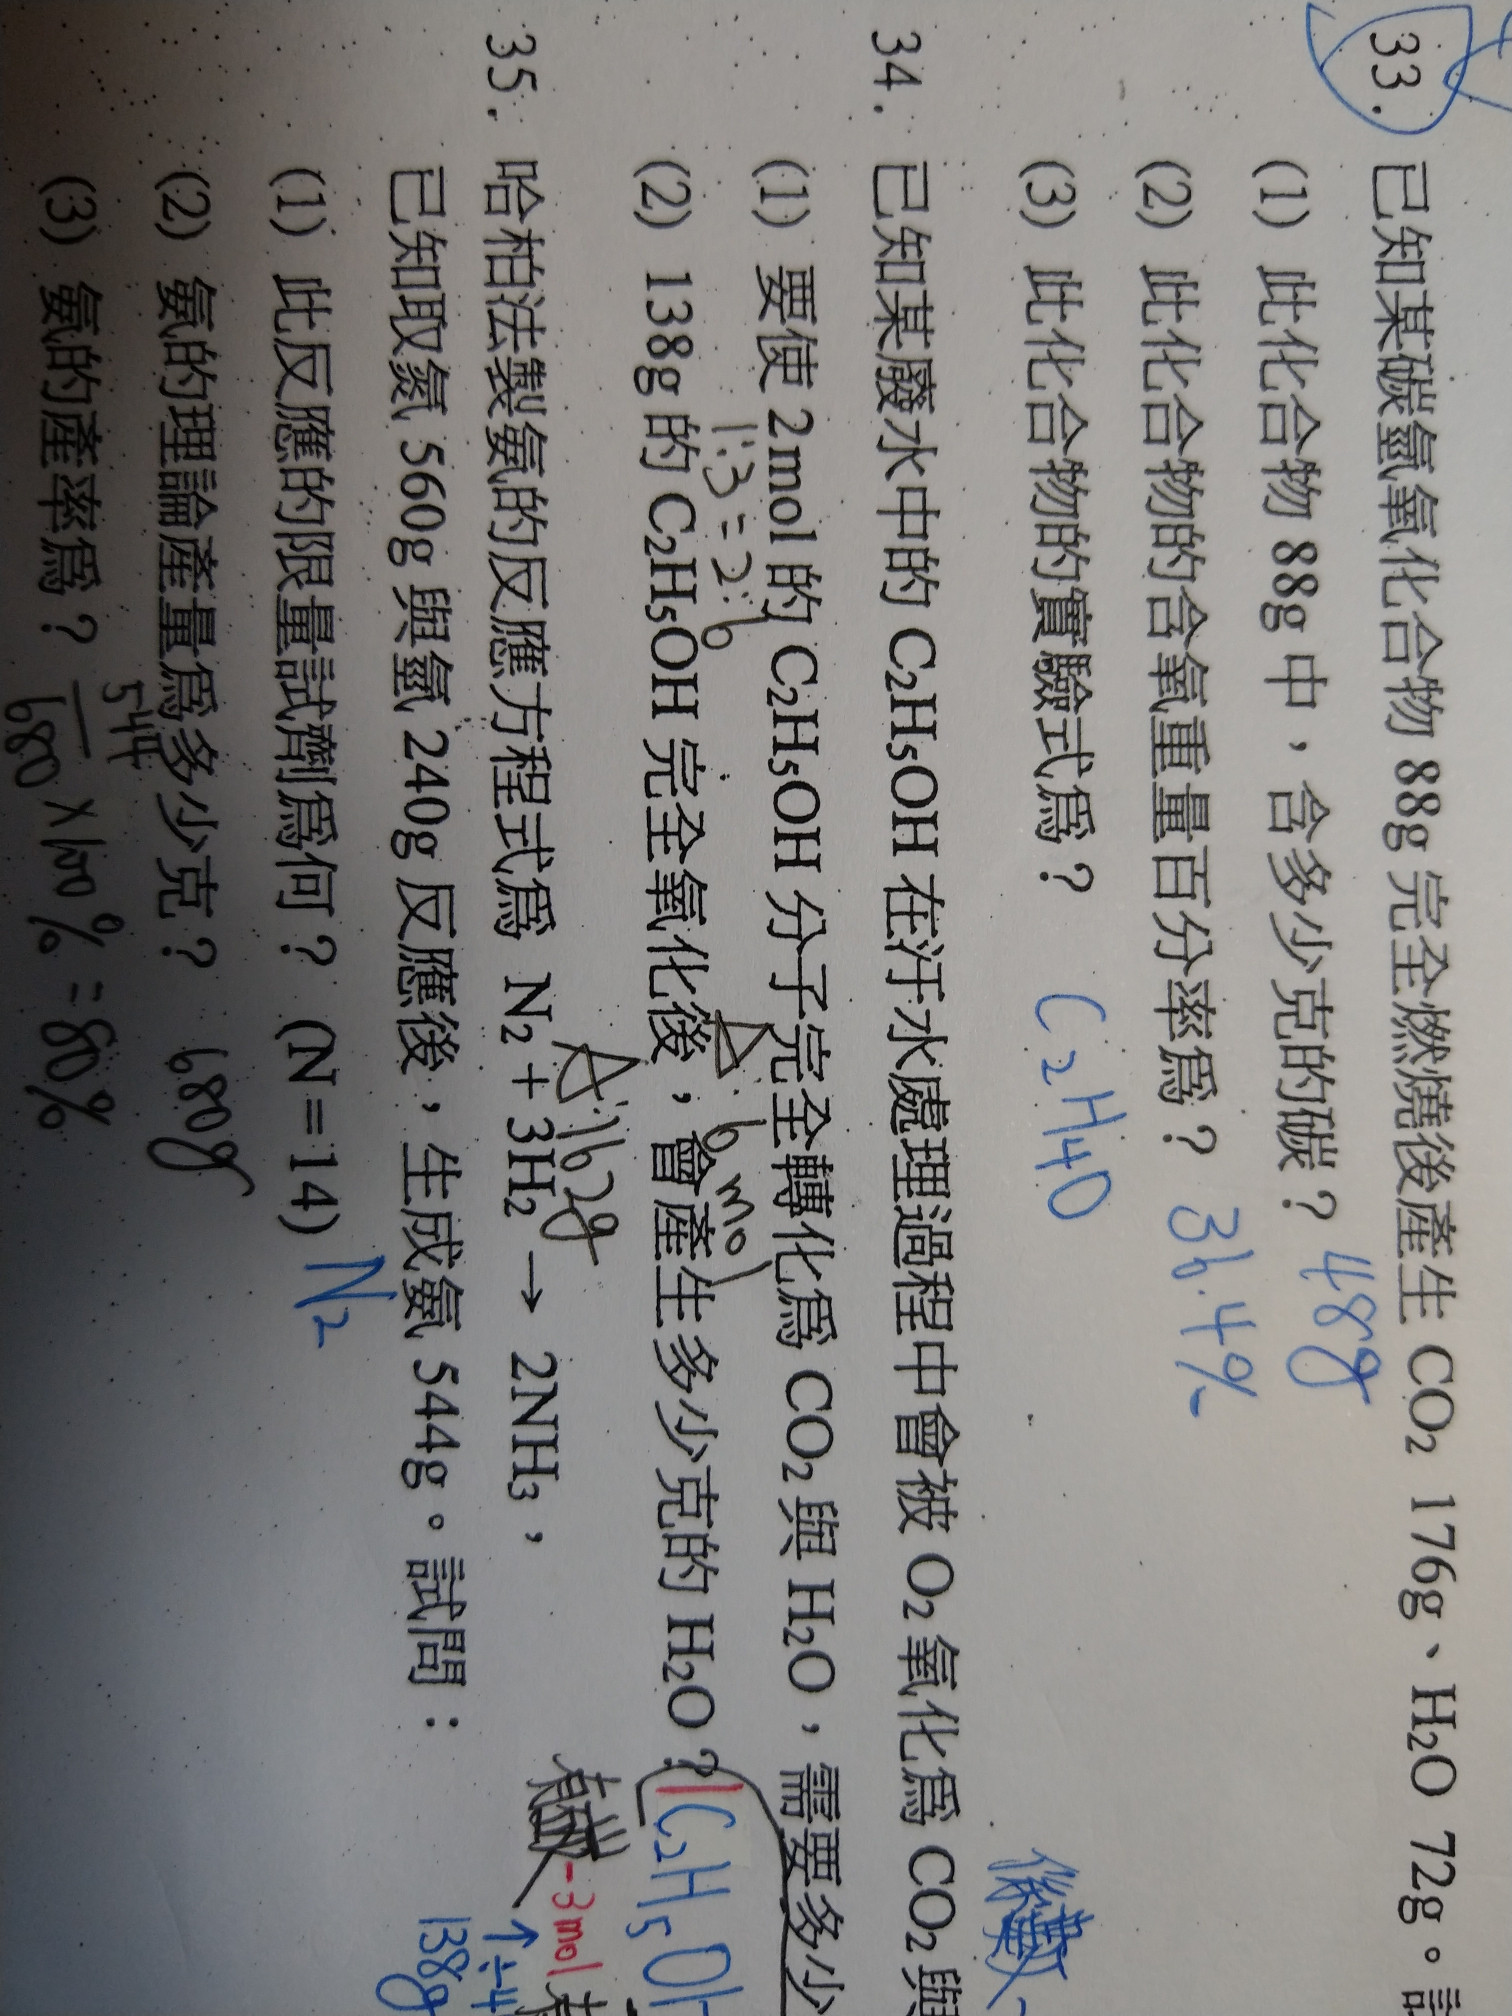 33. 已知某碳氫氧化合物 88g 完全燃燒後產生 CO₂ 176g、H₂O 72g。
(1) 此化合物 88g 中,含多少克的碳? 48g
(2) 此化合物的含氧重量百分率為? 36.4%
(3) 此化合物的實驗式為? C₂H₄O
係數
34. 已知某廢水中的 C₂H₅OH 在汙水處理過程中會被 O₂ 氧化為 CO₂ 與
(1) 要使 2mol 的 C₂H₅OH 分子完全轉化為 CO₂ 與 H₂O,需要多少
1:3=2:6
A:6mol
(2) 138g 的 C₂H₅OH 完全氧化後,會產生多少克的 H₂O?
1C₂H₅OH
A:162g
3mol
÷4
138g
35. 哈柏法製氨的反應方程式為 N₂ + 3H₂ → 2NH₃,
已知取氮 560g 與氫 240g 反應後,生成氨 544g。試問:
(1) 此反應的限量試劑為何? (N=14) N₂
(2) 氨的理論產量為多少克? 680g
(3) 氨的產率為? 544/680 ×100% = 80%